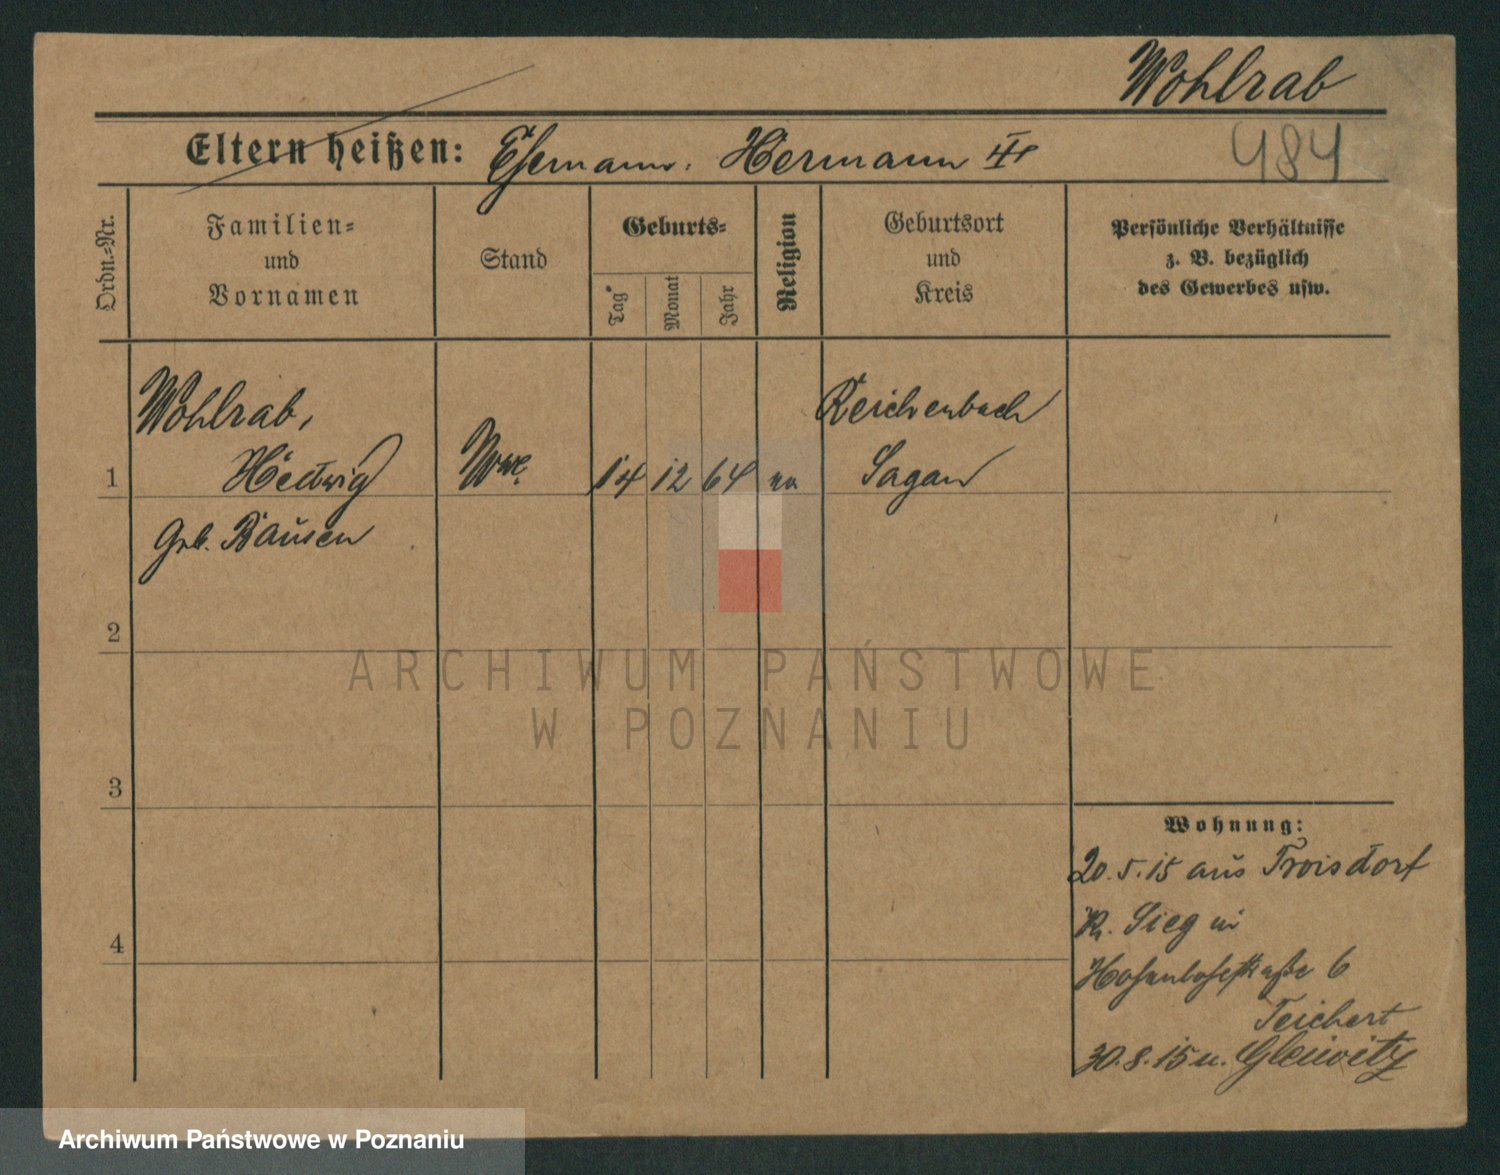 Wohlrab
Eltern heißen: Ehemann: Hermann ‡
484
Ordn.=Nr.
Familien=
und
Vornamen
Stand
Geburts=
Tag
Monat
Jahr
Religion
Geburtsort
und
Kreis
Persönliche Verhältnisse
z. B. bezüglich
des Gewerbes usw.
1
Wohlrab,
Hedwig
geb. Bausen
Wwe.
14 12 64
Reichenbach
Sagan
2
3
4
Wohnung:
20.5.15 aus Troisdorf
Kr. Sieg in
Hohenlohestraße 6
Teichert
30.8.15 n. Gleiwitz
ARCHIWUM PAŃSTWOWE
W POZNANIU
Archiwum Państwowe w Poznaniu